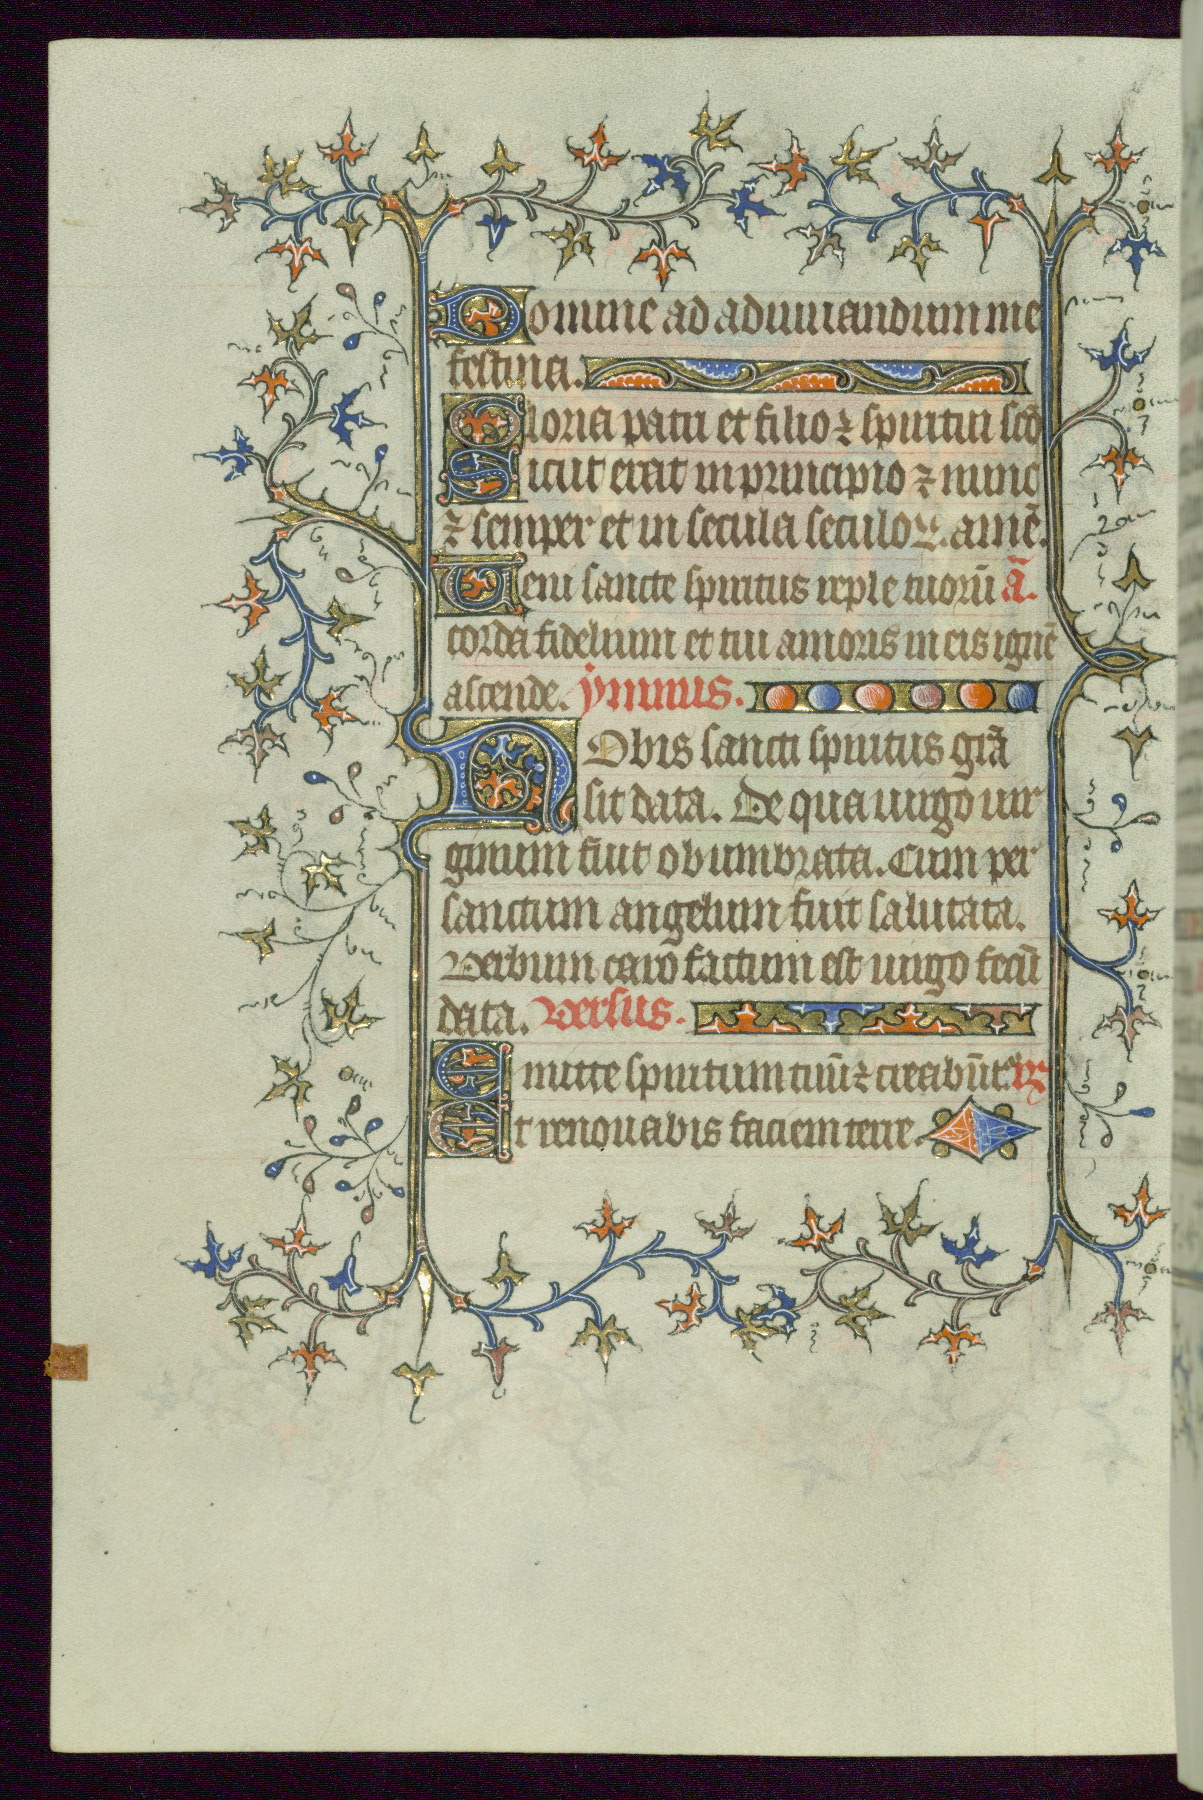 Domine ad adiuuandum me
festina.
Gloria patri et filio ⁊ spiritui sc̄o
Sicut erat in principio ⁊ nunc
⁊ semper et in secula seculoꝝ. amē.
Veni sancte spiritus reple tuorū ā.
corda fidelium et tui amoris in eis ignē
ascende. ẏmnus.
NObis sancti spiritus gr̄a
sit data. De qua uirgo uir
ginum fuit obumbrata. Cum per
sanctum angelum fuit salutata.
Verbum caro factum est uirgo fecū
data. Versus.
Emitte spiritum tuū ⁊ creabūt.
Et renouabis faciem terre.